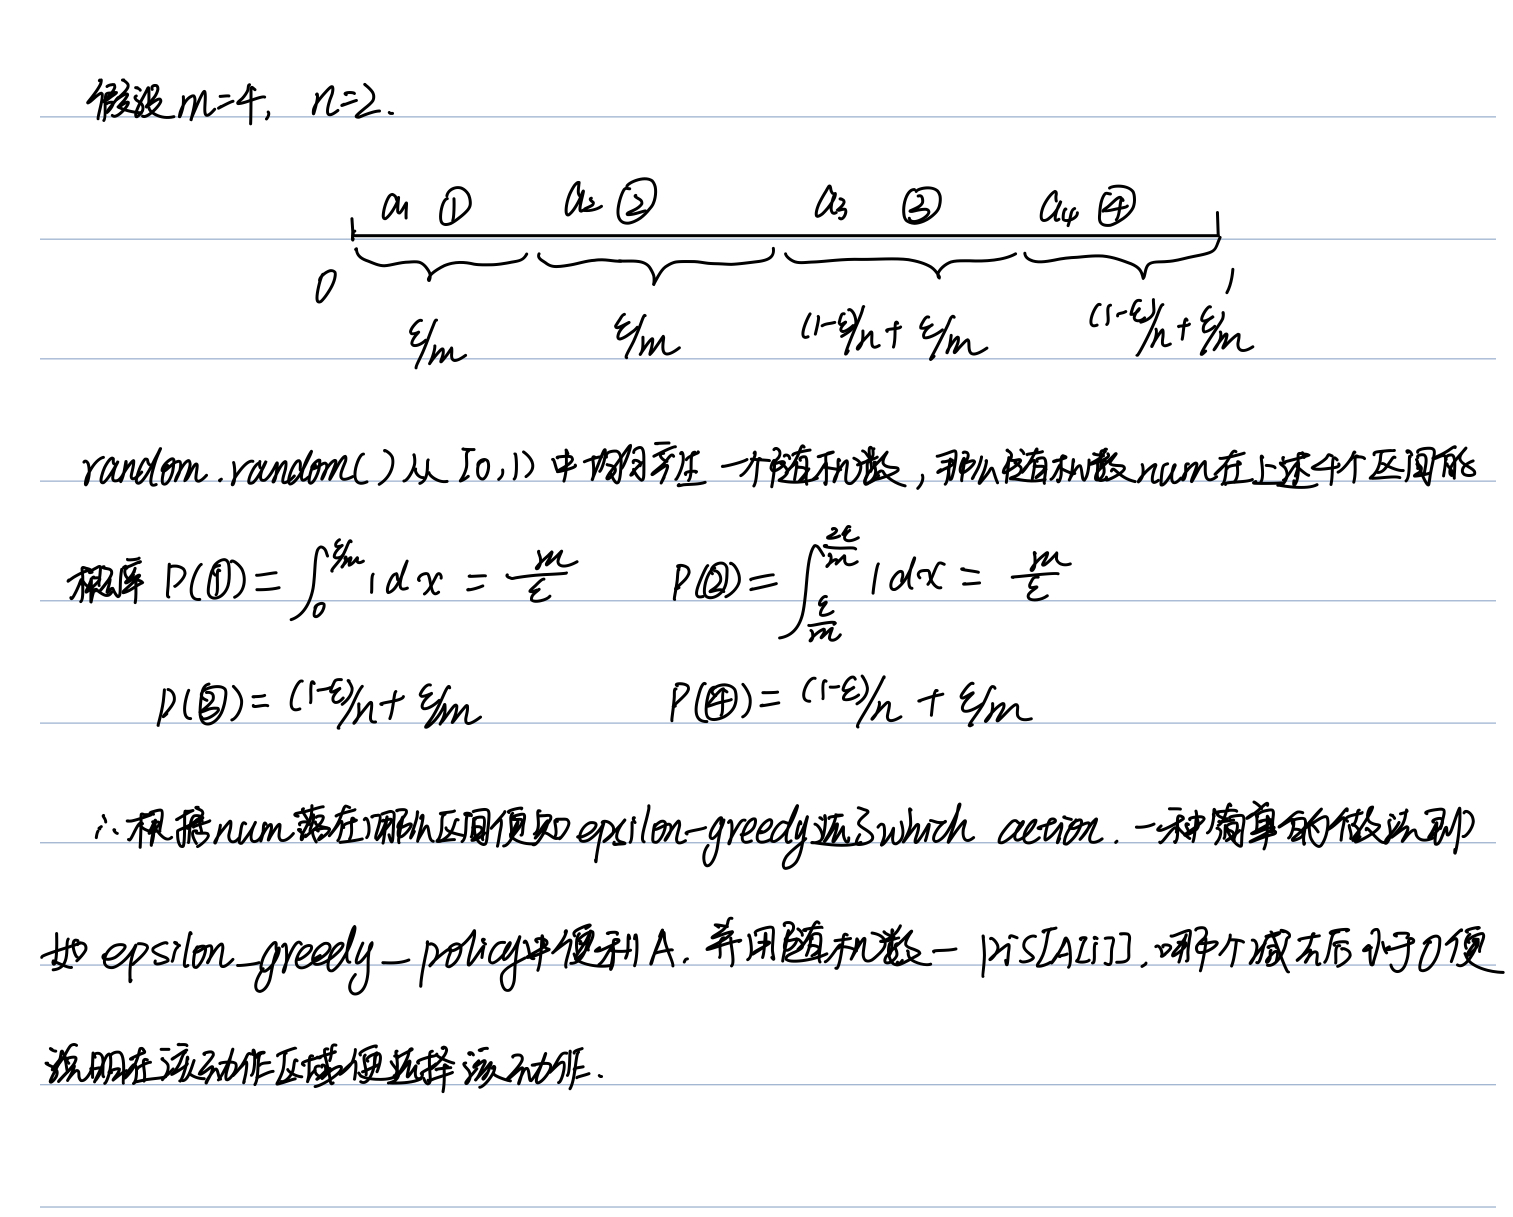 假设 m=4, n=2.
a1 ① a2 ② a3 ③ a4 ④
0 1
ε/m ε/m (1-ε)/n + ε/m (1-ε)/n + ε/m
random.random()从[0,1)中均匀产生一个随机数,那么随机数num在上述4个区间的
概率 P(①) = ∫_0^{ε/m} 1 dx = m/ε P(②) = ∫_{ε/m}^{2ε/m} 1 dx = m/ε
P(③) = (1-ε)/n + ε/m P(④) = (1-ε)/n + ε/m
∴根据num落在哪个区间便知epsilon-greedy选了which action. 一种简单的做法即
如epsilon_greedy_policy中便利A.并用随机数-pis[A[i]],哪个减去后小于0便
说明在该动作区域便选择该动作.